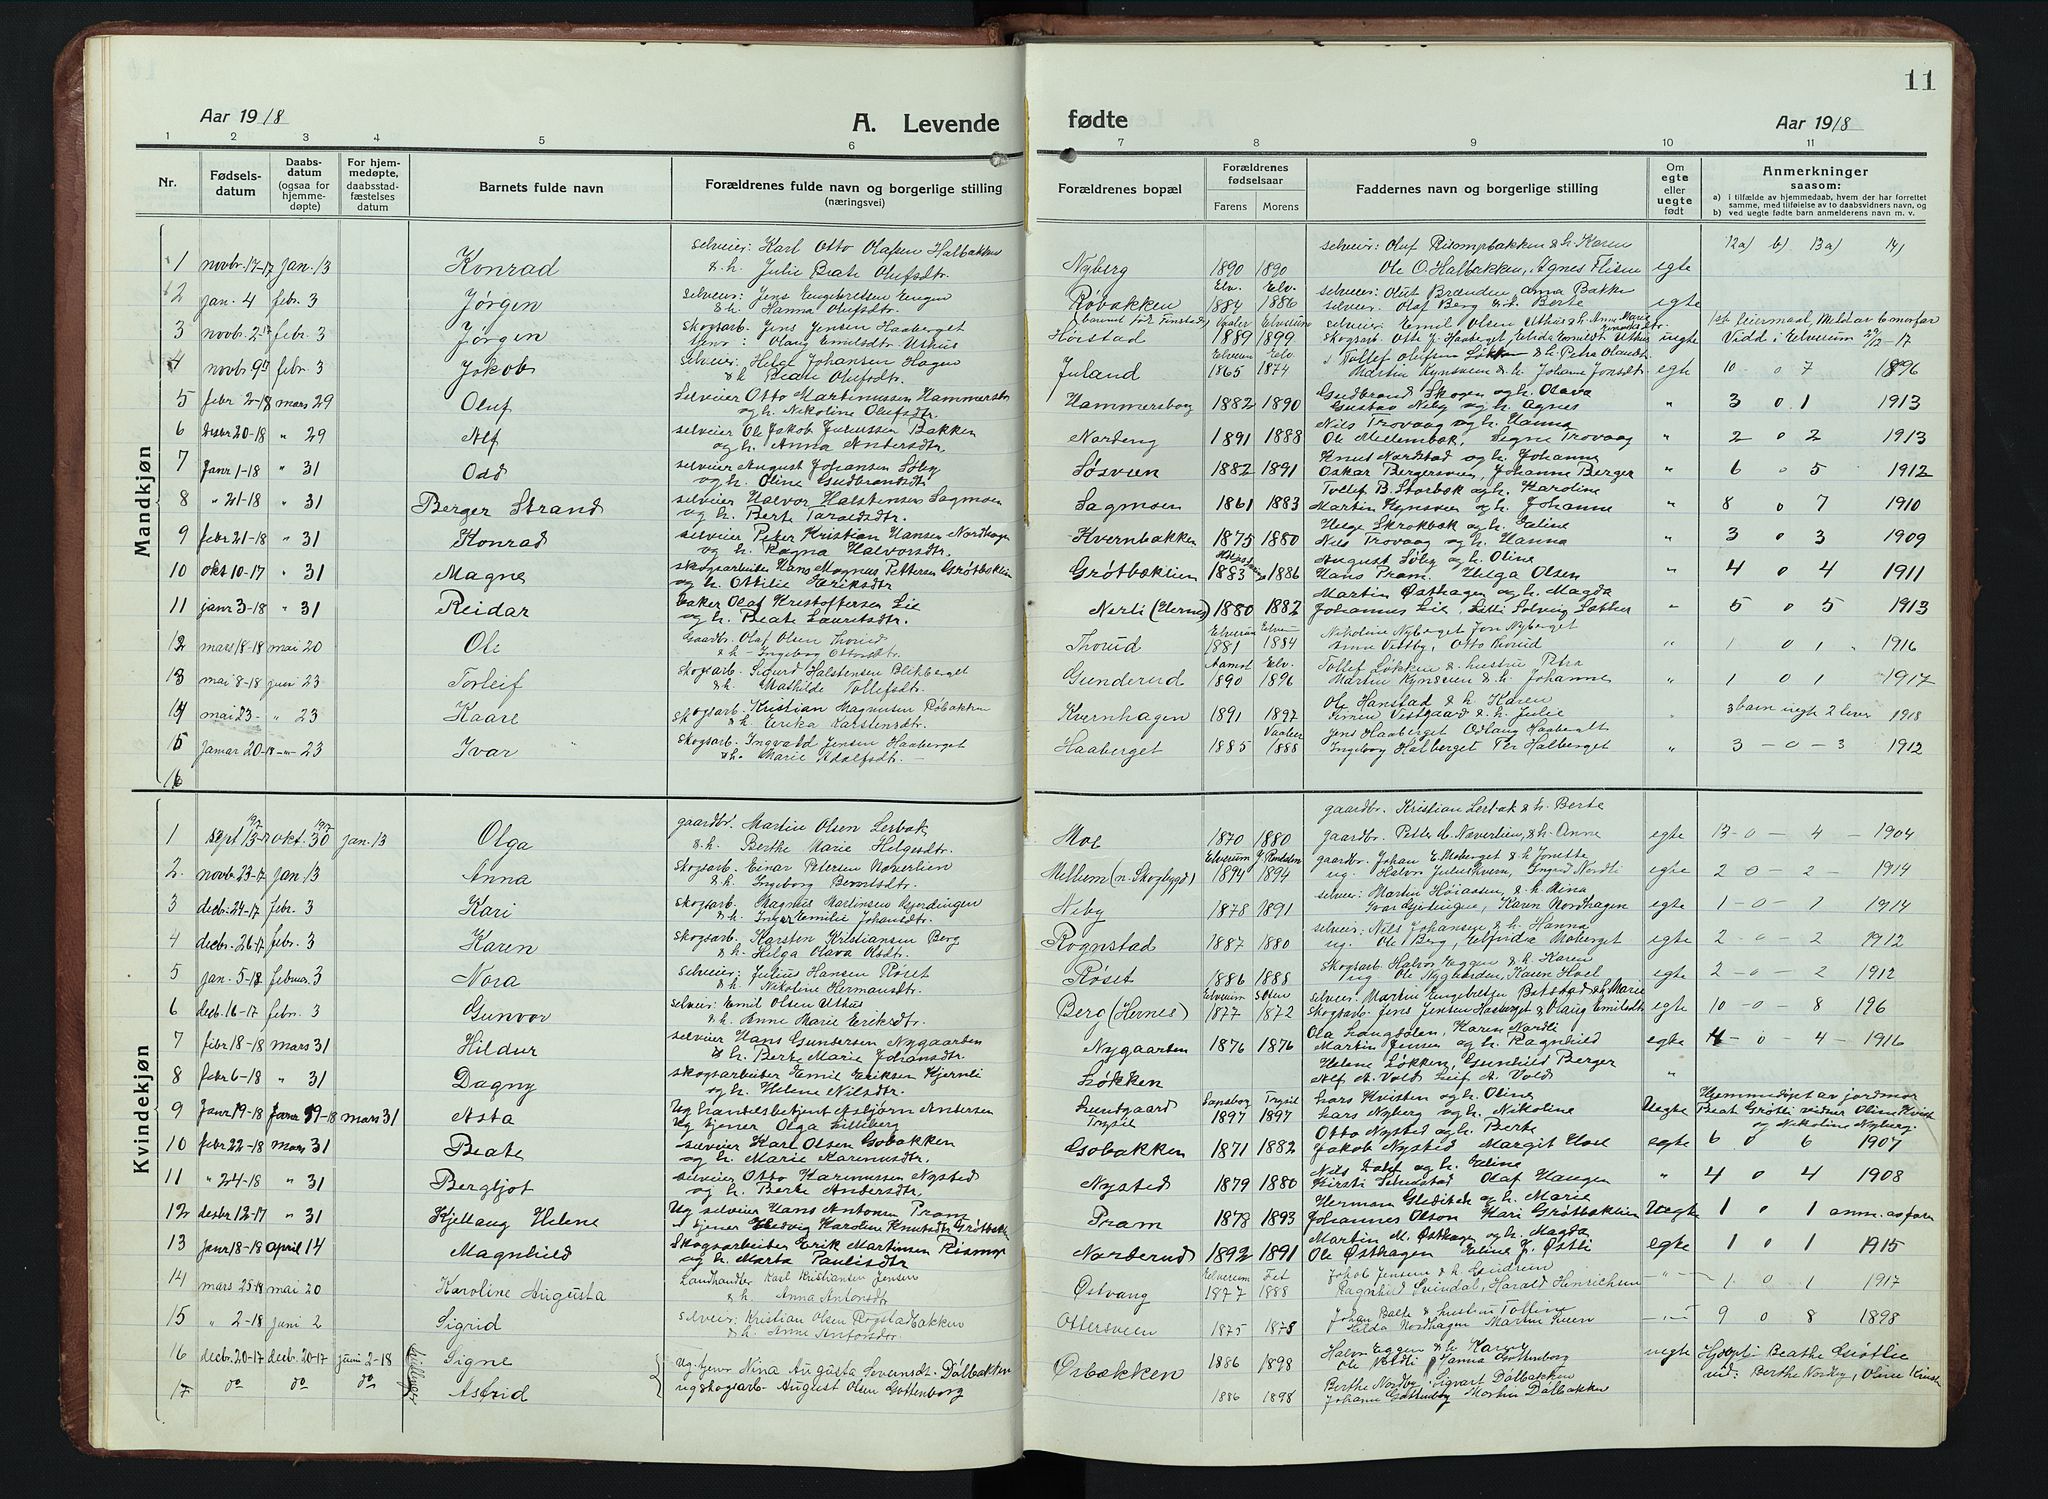 11
Aar 1918
A. Levende
fødte
Aar 1918
1 2 3 4 5 6 7 8 9 10 11
Nr.
Fødsels-datum
Daabs-datum (ogsaa for hjemme-døpte)
For hjem-medøpte, daabsstad-fæstelses datum
Barnets fulde navn
Forældrenes fulde navn og borgerlige stilling (næringsvei)
Forældrenes bopæl
Forældrenes fødselsaar
Farens Morens
Faddernes navn og borgerlige stilling
Om egte eller uegte født
Anmerkninger saasom:
a) i tilfælde av hjemmedaab, hvem der har forrettet samme, med tilføielse av to daabsvidners navn, og
b) ved uegte fødte barn anmelderens navn m. v.
12a) b) 13a) 14)
Mandkjøn
selveier: Karl Otto Olafsen Halbakken selveier: Oluf Risompbakken & h. Karen
1 novbr. 17-17 jan. 13 Konrad & h. Julie Beate Olufsdtr. Nyberg 1890 1890 Ole O. Halbakken, Agnes Flisen egte
2 jan. 4 febr. 3 Jørgen selveier: Jens Engebretsen Engen & h. Hanna Olufsdtr. Røbakken Elv. 1884 Elv. 1886 selveier: Oluf Brænden Anna Bakken selveier. Olaf Berg & h. Berte egte
3 novb. 2-17 febr. 3 Jørgen Skogsarb. Jens Jensen Haaberget tjenr: Olaug Emilsdtr. Uthus Hørstad 1889 Elverum 1899 selveier: Emil Olsen Uthus & h. Anne Marie Skogsarb. Otto J. Haaberget, uegte Vidd i Elverum 29/12-17
4 novbr. 9-17 febr. 3 Jakob Selveier: Helge Johansen Hagen & h. Beate Olufsdtr. Juland Elverum 1865 Elv. 1874 Tollef Olufsen Løkken & h. Petra Olausdtr Martin Kynsveen & h. Johanne Jonsdtr. egte 10 0 7 1896
5 febr 2-18 mars 29 Oluf Selveier Otto Martinussen Hammersbo og h. Nikoline Olufsdtr. Hammersborg 1882 1890 Gudbrand Skogen og h. Olava Gustav Neby og h. Agnes " 3 0 1 1913
6 desbr 20-18 " 29 Alf selveier Ole Jakob Juliussen Bakken og h. Anna Andersdtr. Nordeng 1891 1888 Nils Trovaag og h. Hanna Ole Mellembak, Signe Trovaag " 2 0 2 1913
7 Janr 1-18 " 31 Odd selveier August Johansen Søby og h. Oline Gudbrandsdtr Søsveen 1882 1891 Knut Nordstad og h. Johanne Oskar Bergersveen, Johanne Berger " 6 0 5 1912
8 " 21-18 " 31 Berger Strand selveier Halvor Halstensen Sagmoen og h. Berte Taraldsdtr. Sagmoen 1861 1883 Tollef B. Storbak og h. Karoline Martin Kynsveen og h. Johanne " 8 0 7 1910
9 febr 21-18 " 31 Konrad selveier Peter Kristian Hansen Nordhagen og h. Ragna Halvorsdtr. Kvernbakken 1875 1880 Helge Skrokbæk og h. Eline Nils Trovaag og h. Hanna " 3 0 3 1909
10 okt 10-17 " 31 Magne skogsarbeider Hans Magnus Pettersen Grøtbæklien og h. Ottilie Eriksdtr. Grøtbæklien 1883 1886 August Søby og h. Oline Hans Pram. Helga Olsen " 4 0 4 1911
11 janr 3-18 " 31 Reidar baker Olaf Kristoffersen Lie og h. Beate Lauritsdtr. Nerli (Hernes) 1880 1882 Martin Østhagen og h. Magda Johannes Lie, Solveig " 5 0 5 1913
12 mars 18-18 mai 20 Ole Gaardbr. Olaf Olsen Thorud & h - Ingeborg Ottersdtr. Thorud Elverum 1881 1884 Nikoline Nyberget Jon Nyberget Otto Thorud " 1 0 1 " 1916
13 mai 8-18 juni 23 Torleif Skogsarb. Sigurd Halstensen Blikberget & h. Mathilde Tollefsdtr. Gunderud 1890 Elv. 1896 Tollef Løkken & hustru Petra Martin Kynsveen & h. Johanne " 1 0 1 1917
14 mai 23- " 23 Kaare Skogsarb. Kristian Magnussen Røbakken & h. Erika Karstensdtr. Kvernhagen 1891 1897 Ole Hanstad & h. Karen Vestgaard & h. Julie 3 barn 2 lever 1918
15 januar 20-18 " 23 Ivar Skogsarb. Ingvald Jensen Haaberget & h. Marie Adolfsdtr. Haaberget 1885 1888 Jens Haaberget Odlaug Haaberget Ingeborg Halberget Per Halberget " 3 - 0 - 3 1912
16
Kvindekjøn
gaardbr. Martin Olsen Lerbak gaardbr. Kristian Lerbak & h. Berte
1 sept 13-17 okt. 30 jan. 13 Olga & h. Berthe Marie Helgesdtr. Moe 1870 1880 gaardbr. Petter Næverlien, & h. Anne egte 13 - 0 - 4 - 1904
2. novb. 23-17 jan. 13 Anna Skogsarb. Einar Petersen Næverlien & h. Ingeborg Berntsdtr. Mellum (n. Skogbygd) Elverum 1894 1894 gaardbr. Johan E. Moberget & h. Jonette ug. Halvor Julius Kvern, Ingrid Nordli egte 2 - 0 - 2 - 1914
3 decb. 24-17 febr. 3 Kari skogsarb. Magnus Martinsen Gjerdingen & h. Inger Emilie Johansdtr. Neby 1878 1891 selveier: Martin Høiaasen, & h. Mina Karen Nordhagen egte 1 - 0 - 1 1914
4 decbr. 26-17 febr. 3 Karen Skogsarb. Karsten Kristiansen Berg & h. Helga Olava Olsdtr. Rognstad 1887 1880 selveier: Nils Johansen & h. Hanna ug. Ole Berg, Elfrida Moberget egte 2 - 0 - 2 1912
5 jan. 5-18 februar 3 Nora selveier: Julius Hansen Røset & h. Nikoline Hermansdtr. Røset 1886 1888 Skogsarb. Halvor Eggen & h. Karen ug Ole Nyborden, Karen Hoel egte 2 - 0 - 2 1912
6 decb. 16-17 febr. 3 Gunvor selveier: Emil Olsen Uthus & h. Anne Marie Eriksdtr. Berg (Hernes) Elverum 1877 1872 selveier: Martin Engebretsen Botstad & h. Marie skogsarb. Jens Jensen Haaberget & Olaug Emilsdtr. egte 10 - 0 - 8 196
7 febr 18-18 mars 31 Hildur selveier Hans Gundersen Nygaarden & h. Berte Marie Johansdtr. Nygaarden 1876 1876 Ola Langdalen, Karen Nordli Martin Jensen og h. Ragnhild egte 4 - 0 - 4 - 1916
8 febr 6-18 " 31 Dagny skogsarbeider Emil Eriksen Kjernli og h. Helene Nilsdtr. Løkken Helene Løkken, Gunhild Berger Alf A. Vold Leif A. Vold "
9 Janr 19-18 Janr 19-18 mars 31 Asta Ug handelsbetjent Asbjørn Andersen Ug tjener Olga Lilleberg Lundgaard Trysil Sarpsborg 1897 Trysil 1897 Lars Kvisten og h. Oline Lars Nyberg og h. Nikoline Uegte Hjemmedøpt av jordmor Beate Grøtli vidner Oline Kvist og Nikoline Nyberg.
10 febr 22-18 mars 31 Beate selveier Karl Olsen Gobakken og h. Marie Karinusdtr. Gobakken 1871 1882 Otto Nysted og h. Berte Jakob Nysted Margit Hoel egte 6 0 6 1907
11 " 24-18 " 31 Bergljot selveier Otto Karinussen Nysted og h. Berte Andersdtr. Nysted 1879 1880 Nils og h. Eline Kirsti Olaf Haugen " 4 0 4 1908
12 desbr 12-17 " 31 Kjellaug Helene Ug selveier Hans Antonsen Pram " tjener Hedvig Karoline Knutsdtr Grøtbæklien Pram 1878 1893 Herman Gleditsch og h. Marie Johannes Olson Kari Grøtbæklien Uegte 1 0 1 anm. av faren
13 Janr 18-18 april 14 Magnhild Skogsarbeider Erik Martinsen Risomp og h. Marta Paulisdtr Norderud 1892 1891 Martin M. Østhagen og h. Magda Ole Østhagen Eline J. Østli egte 1 0 1 1915
14 mars 25-18 mai 20 Karoline Augusta Landhandler Karl Kristiansen Jensen & h. Anna Antonsdtr Østvang Elverum 1877 Fet 1888 Jakob Jensen & h. Gudrun Ragnhild Svindal, Harald Henrichsen - " - 1 0 1 1917
15 " 2-18 juni 2 Sigrid selveier: Kristian Olsen Rogstadbakken & h. Anne Antonsdtr Ottersveen 1875 1878 Johan Balte & hustru Tolline Hilda Nordhagen Martin Tveen - " - 9 0 8 1898
16 decb. 20-17 decb. 20-17 juni 2-18 tvillinger Signe Ug. tjenr Nina Augusta Severinsdt. Dølbakken Ørbækken 1886 1898 Halvor Eggen & h. Karen Ole Vestli Hanna Gottenborg uegte Hjdøpt Beathe Grøtlie
17 do do do Astrid ug skogsarb- August Olsen Gottenborg 1886 1898 Berthe Nordby, Sigvart Dølbakken Johan Gottenborg Martin Dølbakken vid: Berthe Nordby, Oline Kvist